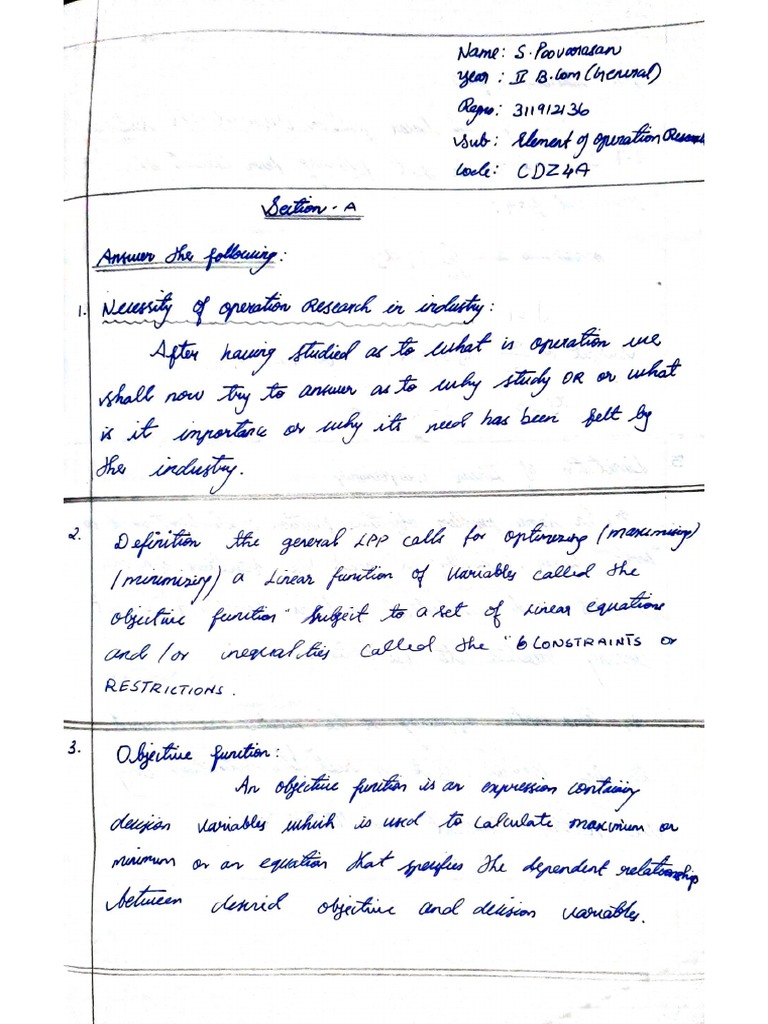 Name: S. Poovarasan
Year: II B.Com (General)
Regno: 311912136
Sub: Element of operation Research
Code: CDZ4A
Section - A
Answer the following:
1. Necessity of operation Research in industry:
After having studied as to what is operation we
shall now try to answer as to why study OR or what
is it importance or why its need has been felt by
the industry.
2. Definition the general LPP calls for optimizing (maximising)
(minimizing) a Linear function of variables called the
objective function" Subject to a set of Linear equations
and / or inequalities called the "6 CONSTRAINTS or
RESTRICTIONS.
3. Objective function:
An objective function is an expression containing
decision variables which is used to calculate maximum or
minimum or an equation that specifies the dependent relationship
between desired objective and decision variables.